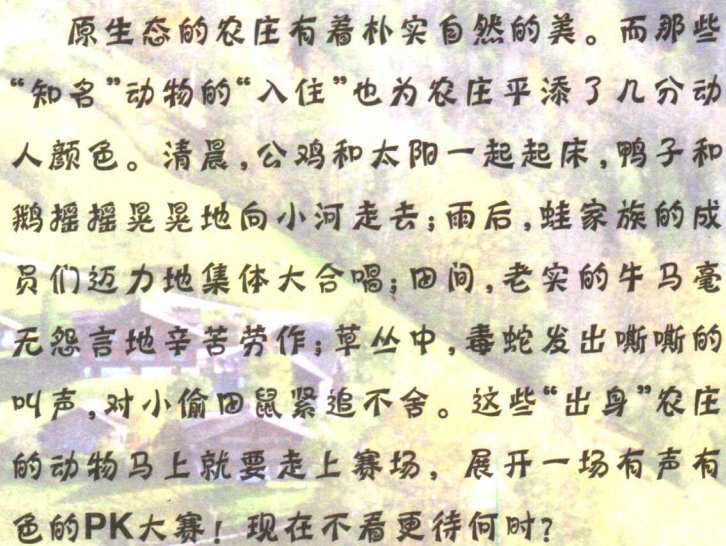 原生态的农庄有着朴实自然的美。而那些
“知名”动物的“入住”也为农庄平添了几分动
人颜色。清晨,公鸡和太阳一起起床,鸭子和
鹅摇摇晃晃地向小河走去;雨后,蛙家族的成
员们迈力地集体大合唱;田间,老实的牛马毫
无怨言地辛苦劳作;草丛中,毒蛇发出嘶嘶的
叫声,对小偷田鼠紧追不舍。这些“出身”农庄
的动物马上就要走上赛场，展开一场有声有
色的PK大赛！现在不看更待何时?